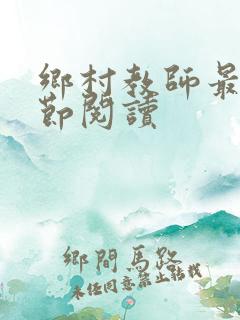 鄉村教師最
節閱讀
鄉間馬路
未經同意禁止轉載